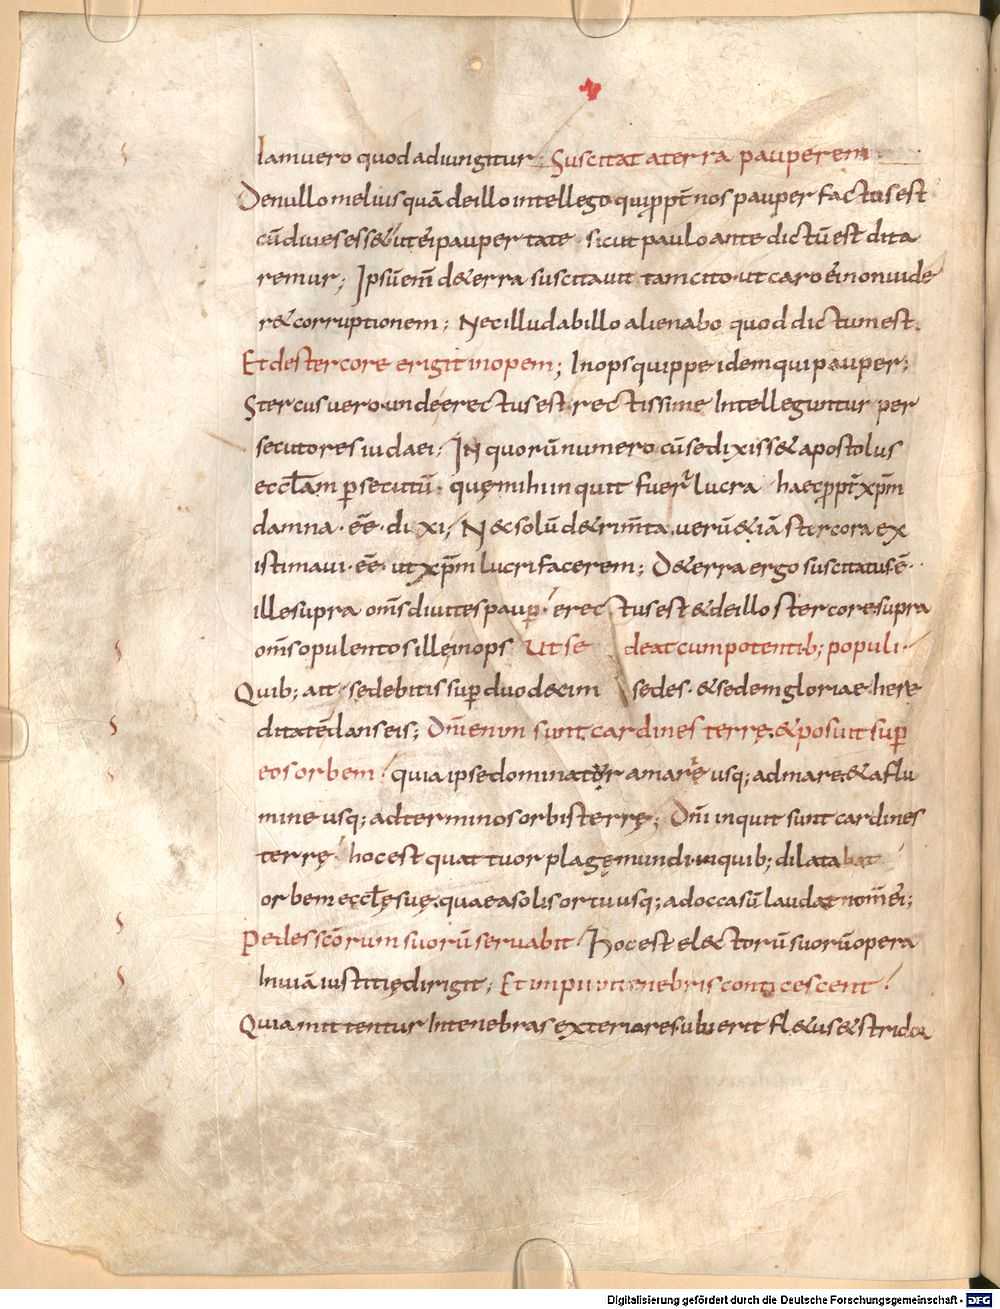 Iam uero quod adiungitur. Suscitat a terra pauperem.
De nullo melius quā de illo intellego qui ppt̄ nos pauper factus est
cū diues ess& ut ei᷒ paupertate. sicut paulo ante dictū est dita
remur; Ipsū em̄ de terra suscitauit tam cito. ut caro ei᷒ non uide
r& corruptionem; Nec illud ab illo alienabo quod dictum est.
Et de stercore erigit inopem; Inops quippe idem qui pauper;
Stercus uero. unde erectus est. rectissime Intelleguntur per
secutores iudaei; IN quorū numero cū se dixiss& apostolus
eccl̄am p̱secutū. quę mihi inquit fuer̄ lucra haec ppt̄ xp̄m
damna. eē. dixi; N& solū d&rim̄ta. uerū &iā stercora ex
istimaui. eē. ut xp̄m lucri facerem; De terra ergo suscitatus ē.
ille supra om̄s diuites paup̱. erectus est & de illo stercore. supra
om̄s opulentos ille inops Ut se deat cum potentib; populi.
Quib; ait. sedebitis sup̱ duodecim sedes. & sedem gloriae here
ditatē dans eis; Dn̄i enim sunt cardines terrę. & posuit sup̱
eos orbem. quia ipse dominatur a mare usq; ad mare. & a flu
mine usq; ad terminos orbis terrę; Dn̄i inquit sunt cardines
terrę. hoc est quattuor plagę mundi. in quib; dilatabat
orbem eccl̄ę suę. quae a solis ortu usq; ad occasū laudat nom̄ ei᷒;
Pedes scōrum suorū seruabit. Hoc est electorū suorū opera
In uiā iustitię dirigit; Et impii in tenebris conticescent.
Quia mittentur In tenebras exteriores ubi erit fl&us & stridor
Digitalisierung gefördert durch die Deutsche Forschungsgemeinschaft - DFG